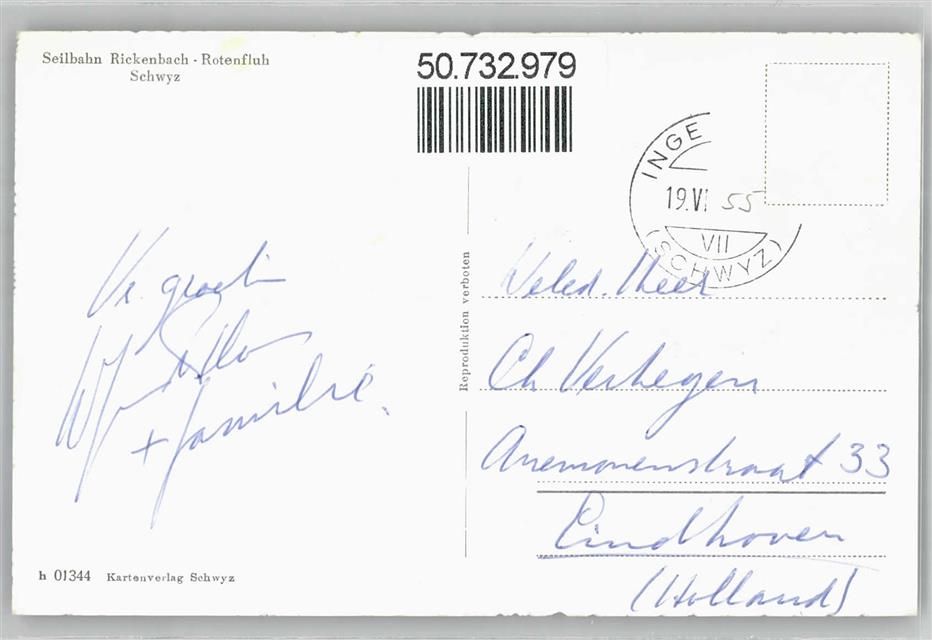 Seilbahn Rickenbach - Rotenfluh
Schwyz
50.732.979
INGE
19.VI 55
VII
(SCHWYZ)
Reproduktion verboten
Vr. groeten
+ familie.
Weled. Heer
Ch Verhegen
Anemonenstraat 33
Eindhoven
(Holland)
h 01344 Kartenverlag Schwyz